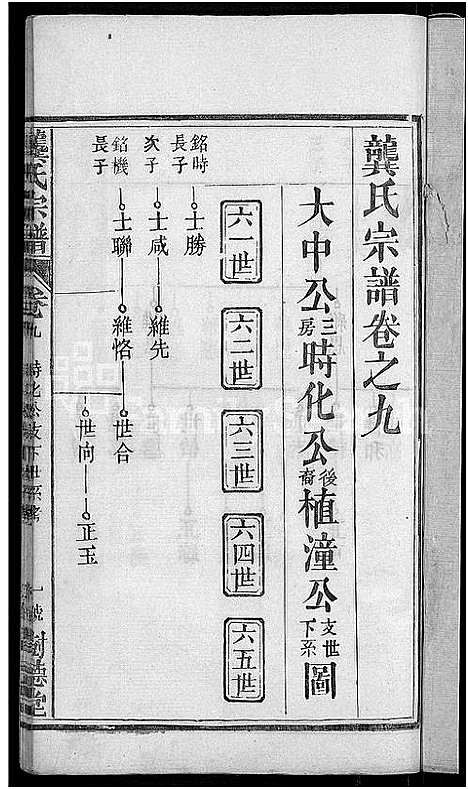 龔氏宗譜卷之九
大中公三房時化公後裔植潼公支下世系圖
六一世
六二世
六三世
六四世
六五世
銘時長子
士勝
次子
士咸
維先
銘機長子
士聯
維恪
世合
世向
正玉
龔氏宗譜
卷九
時化公支下世系
一號
樹德堂